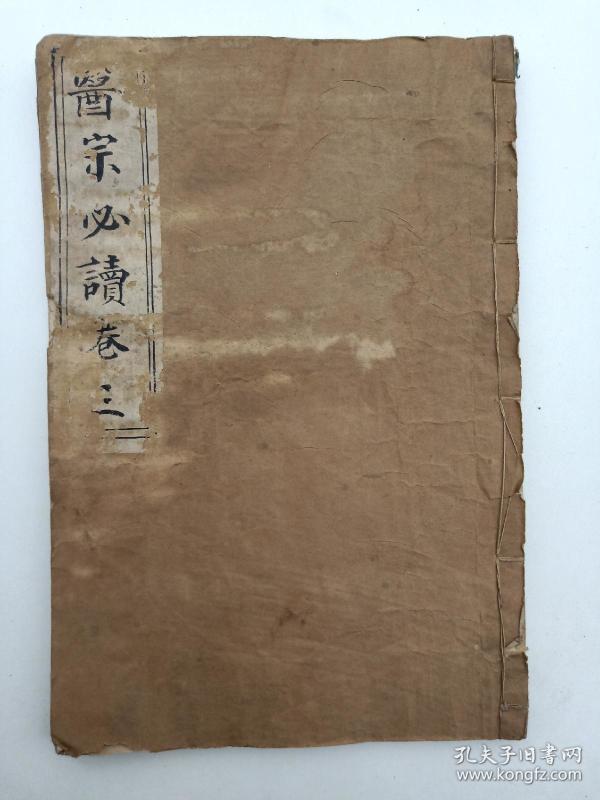 醫宗必讀卷三
孔夫子旧书网
www.kongfz.com